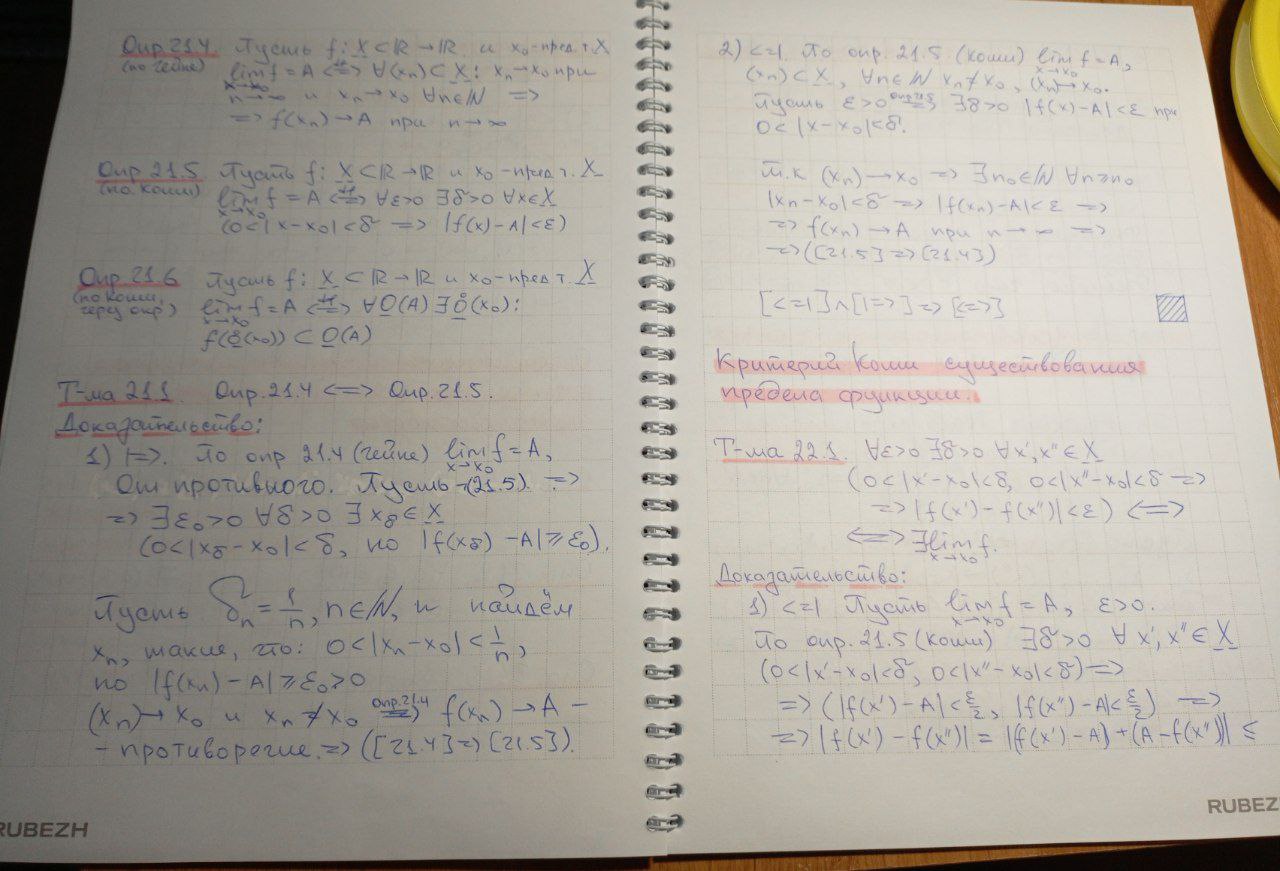 Опр 21.4. Пусть f: X ⊂ ℝ → ℝ и x₀-пред. т. X
(по Гейне) lim f = A ⇔ ∀(xₙ) ⊂ X: xₙ→x₀ при
x→x₀
n→∞ и xₙ→x₀ ∀n∈ℕ =>
=> f(xₙ)→A при n→∞
Опр 21.5 Пусть f: X⊂ℝ→ℝ и x₀-пред. т. X
(по Коши) lim f = A ⇔ ∀ε>0 ∃δ>0 ∀x∈X
x→x₀
(0<|x-x₀|<δ => |f(x)-A|<ε)
Опр 21.6 Пусть f: X ⊂ ℝ → ℝ и x₀-пред т. X
(по Коши, через окр) lim f = A ⇔ ∀O(A) ∃O̊(x₀):
x→x₀
f(O̊(x₀)) ⊂ O(A)
Т-ма 21.1. Опр. 21.4 <=> Опр. 21.5.
Доказательство:
1) |=>. По опр 21.4 (Гейне) lim f = A,
x→x₀
От противного. Пусть ¬(21.5). =>
=> ∃ε₀>0 ∀δ>0 ∃x_δ∈X
(0<|x_δ-x₀|<δ, но |f(x_δ)-A|⩾ε₀).
Пусть δₙ = 1/n, n∈ℕ, и найдём
xₙ, такие, что: 0<|xₙ-x₀|<1/n,
но |f(xₙ)-A|⩾ε₀>0
(xₙ)→x₀ и xₙ≠x₀ =>(Опр.21.4) f(xₙ)→A -
- противоречие. => ([21.4]=>[21.5]).
RUBEZH
2) <=|. По опр. 21.5 (Коши) lim f = A,
x→x₀
(xₙ)⊂X, ∀n∈ℕ xₙ≠x₀, (xₙ)→x₀.
Пусть ε>0 => ∃δ>0 |f(x)-A|<ε при
0<|x-x₀|<δ.
Т.к (xₙ)→x₀ => ∃n₀∈ℕ ∀n⩾n₀
|xₙ-x₀|<δ => |f(xₙ)-A|<ε =>
=> f(xₙ)→A при n→∞ =>
=> ([21.5]=>[21.4])
[<=|]∧[|=>] => [<=>]
Критерий Коши существования
предела функции.
Т-ма 22.1. ∀ε>0 ∃δ>0 ∀x', x''∈X
(0<|x'-x₀|<δ, 0<|x''-x₀|<δ =>
=> |f(x')-f(x'')|<ε) <=>
<=> ∃lim f.
x→x₀
Доказательство:
1) <=| Пусть lim f = A, ε>0.
x→x₀
По опр. 21.5 (Коши) ∃δ>0 ∀x', x''∈X
(0<|x'-x₀|<δ, 0<|x''-x₀|<δ) =>
=> (|f(x')-A|<ε/2, |f(x'')-A|<ε/2) =>
=> |f(x')-f(x'')| = |f(x')-A)+(A-f(x'')| ≤
RUBEZ